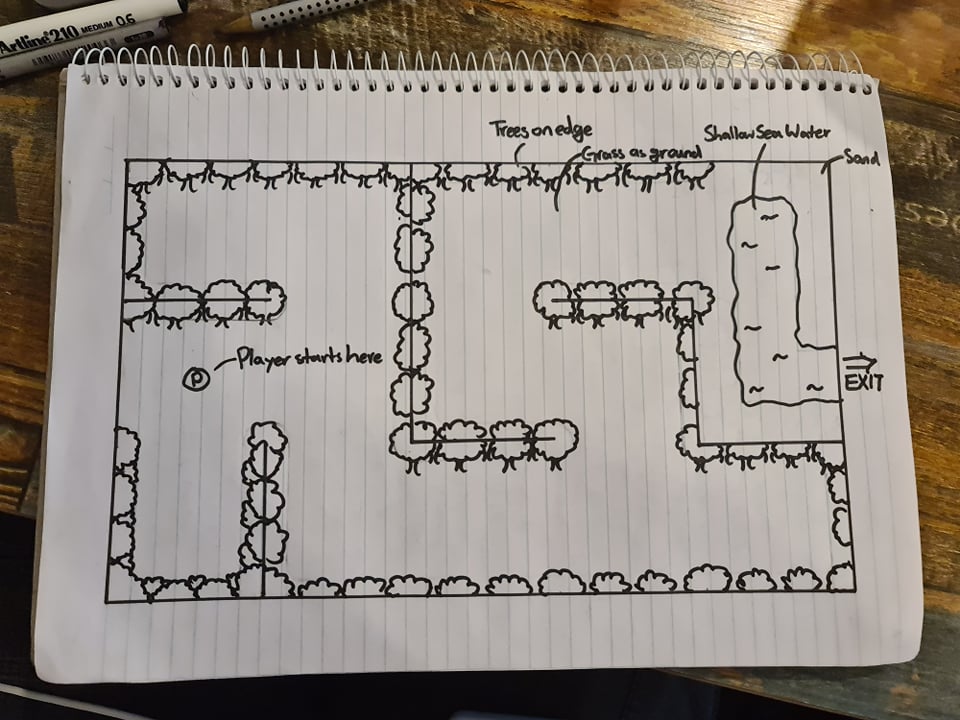 Artline 210 MEDIUM 0.6
Trees on edge
Grass as ground
Shallow Sea Water
Sand
Player starts here
P
EXIT